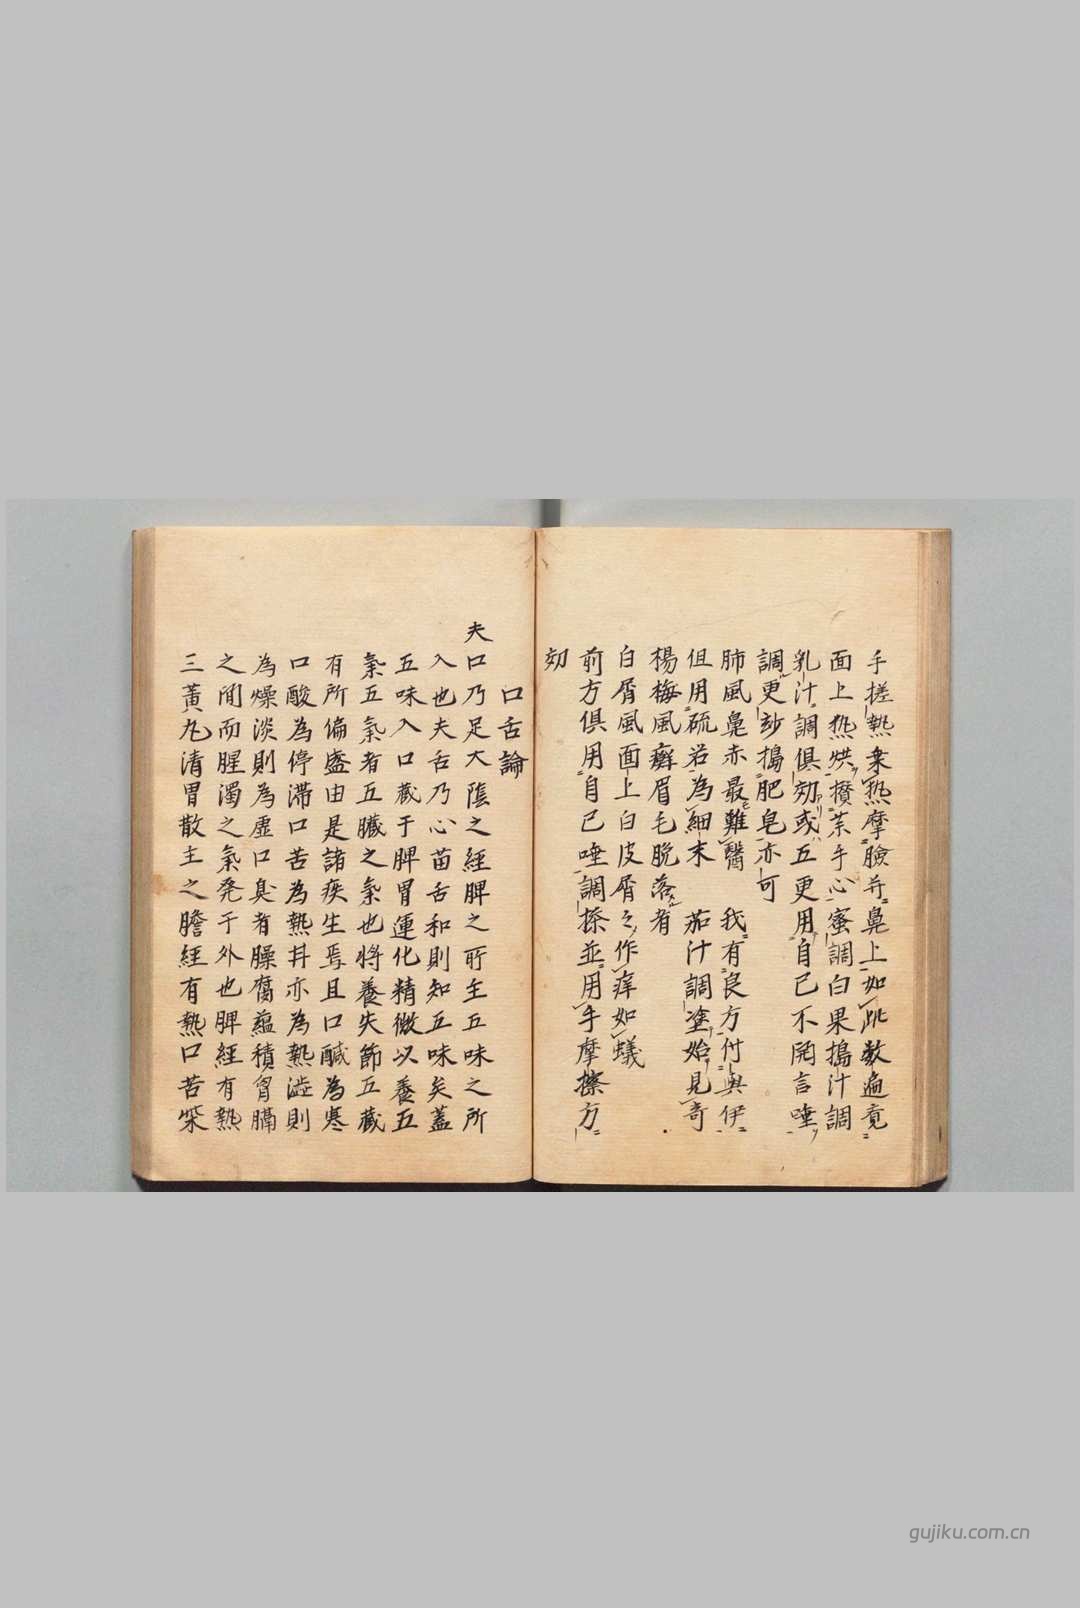 手搓熱乗热摩臉并鼻上如此数遍竟
面上热烘攢茱手心蜜調白果搗汁調
乳汁調俱効或五更用自己不開言唾
調更妙搗肥皂亦可
肺風鼻赤最難醫 我有良方付與伊
但用硫若為細末 茄汁調塗始見奇
楊梅風癬眉毛脫落者
白屑風面上白皮屑々作痒如蟻
前方俱用自己唾調搽並用手摩擦方
効
口舌論
夫口乃足大陰之經脾之所主五味之所
入也夫舌乃心苗舌和則知五味矣蓋
五味入口藏于脾胃運化精微以養五
氣五氣者五臟之氣也將養失節五藏
有所偏盛由是諸疾生焉且口鹹為寒
口酸為停滯口苦為熱甘亦為熱澁則
為燥淡則為虛口臭者臊腐蘊積胷膈
之間而腥濁之氣発于外也脾經有熱
三黃丸清胃散主之膽經有熱口苦柴
gujiku.com.cn